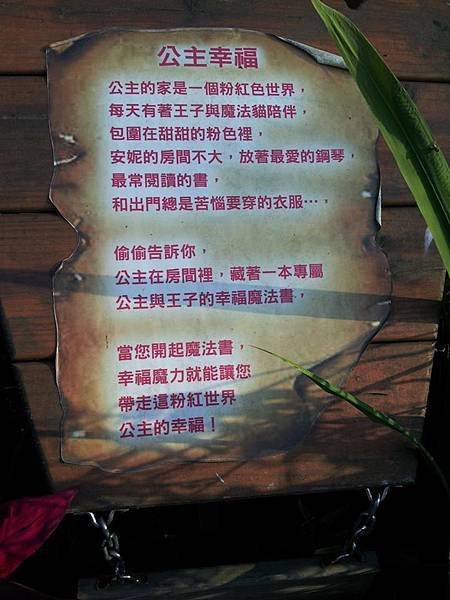 公主幸福
公主的家是一個粉紅色世界，
每天有著王子與魔法貓陪伴，
包圍在甜甜的粉色裡，
安妮的房間不大，放著最愛的鋼琴，
最常閱讀的書，
和出門總是苦惱要穿的衣服…，
偷偷告訴你，
公主在房間裡，藏著一本專屬
公主與王子的幸福魔法書，
當您開起魔法書，
幸福魔力就能讓您
帶走這粉紅世界
公主的幸福！